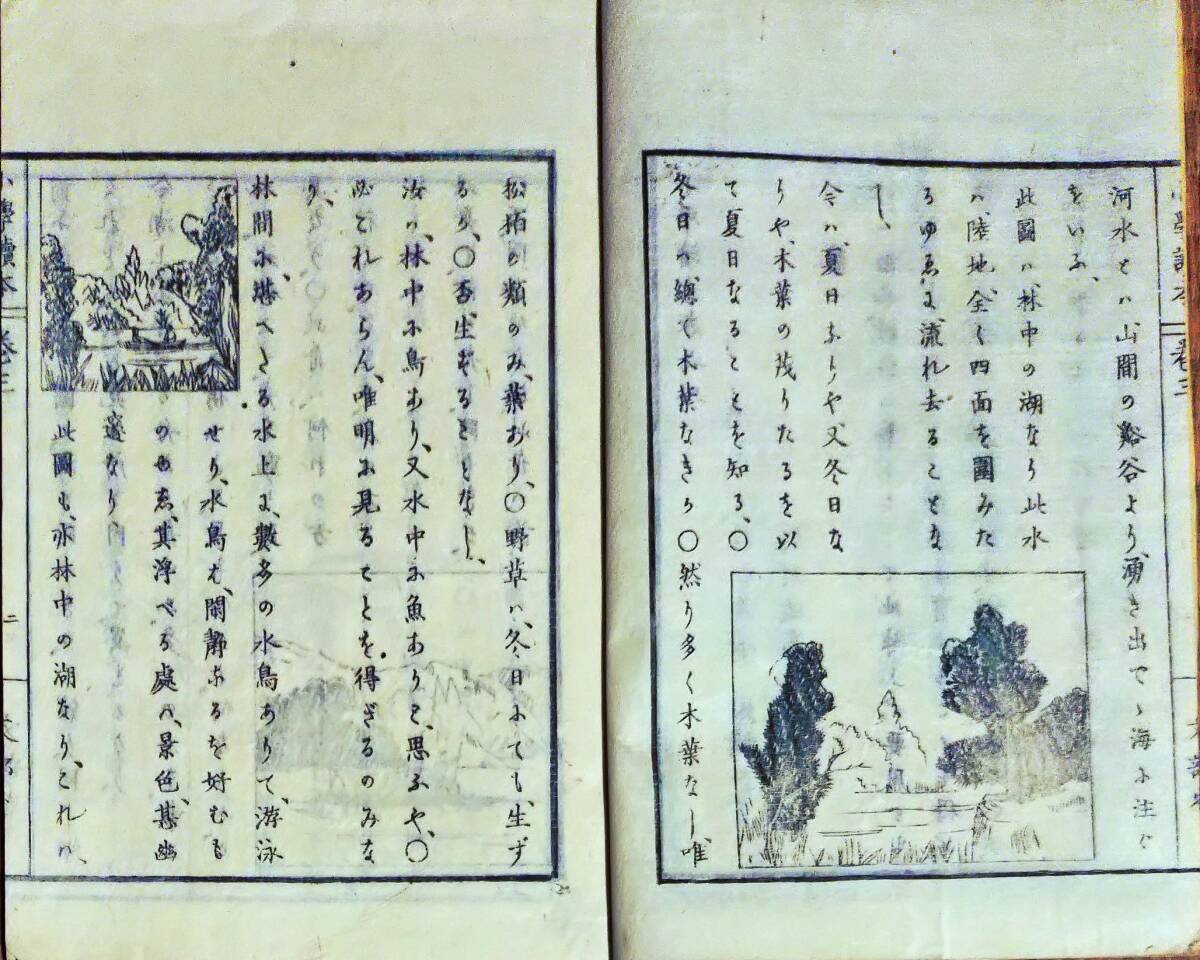 河水とハ山間の谿谷より、湧き出でゝ海ふ注ぐ
をいふ、
此圖ハ、林中の湖なり此水
ハ、陸地、全く四面を圍みた
るゆゑに、流れ去ることな
し、
今ハ、夏日なりや、又冬日な
りや、木葉の茂りたるを以
て夏日なることを知る、〇
冬日ハ、總て木葉なきか〇然り多く木葉なし、唯
松栢の類のみ、葉あり、〇野草ハ、冬日にても、生ず
るか、〇否、生ずることなし、
汝ハ、林中に鳥あり、又水中に魚ありと、思ふや、〇
必これあらん、唯明に見ることを得ざるのみな
り、
林間に、湛へたる水上に、數多の水鳥ありて、游泳
せり、水鳥は、閑靜なるを好むも
のゆゑ、其浮べる處ハ、景色、甚幽
邃なり、
此圖も、亦林中の湖なり、これハ、
小學讀本 卷三
二
小學讀本 卷三